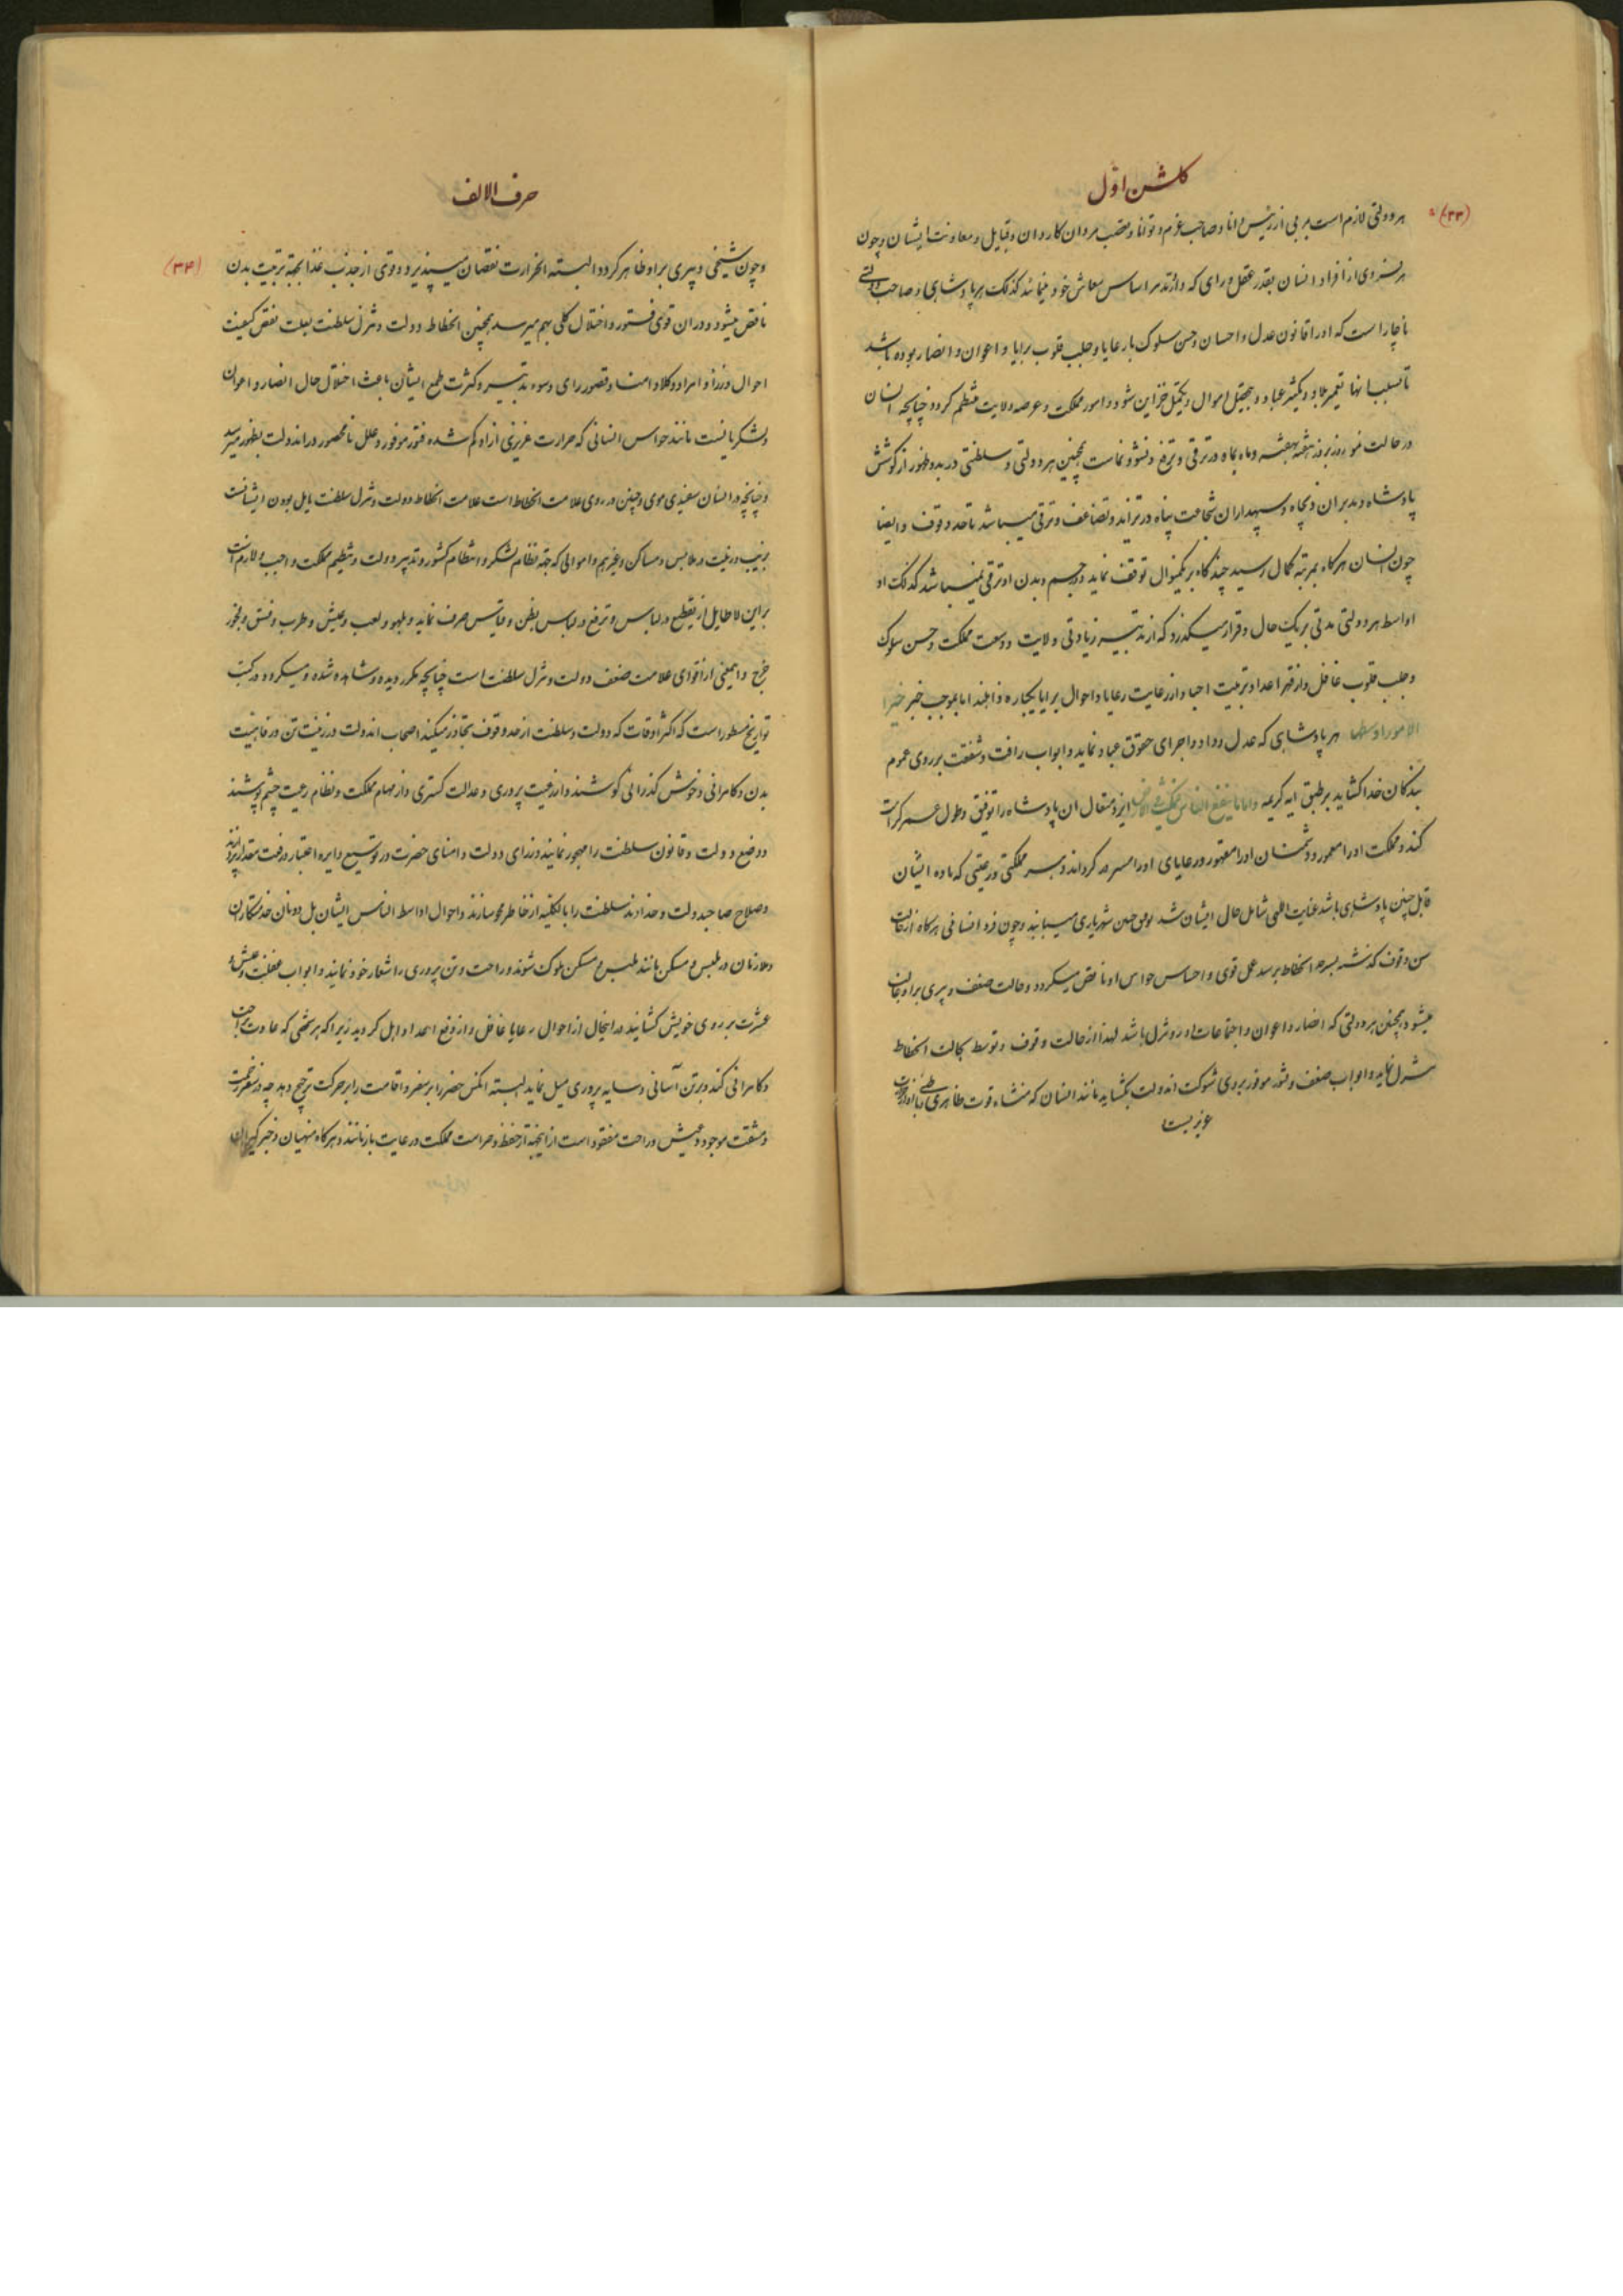 کلشن اوّل
(۳۳)
هر دولتی لازم است مربی از رئیس دانا و صاحب عزم و توانا و تعصب مردان کاردان و قبایل و معاونت ایشان و چون
هر فردی از افراد انسان بقدر عقل و رای که دارد تدبیر اساس معاش خود مینماید کذلک هر پادشاهی و صاحب دولتی
ناچار است که او را قانون عدل و احسان و حسن سلوک با رعایا و جلب قلوب برایا و اعوان و انصار بوده باشد
تا بسبب انها تعمیر بلاد و تکثیر عباد و تحصیل اموال و تکمیل خزاین شود و امور مملکت و عرصه ولایت منتظم کردد چنانچه انسان
در حالت نمو روز بروز هفته بهفته و ماه بماه در ترقی و ترفع و نشو و نماست همچنین هر دولتی و سلطنتی در بدو ظهور از کوشش
پادشاه و مدبران و سپهداران شجاعت پناه در تزاید و تضاعف و ترقی میباشد تا حد وقوف و ایضا
چون انسان هرکاه بمرتبه کمال رسید چند کاه بر یکمنوال توقف نماید و در جسم و بدن او ترقی نمیباشد کذلک
اواسط هر دولتی مدتی بر یک حال و قرار میکذرد که از تدبیر زیادتی ولایت و وسعت مملکت و حسن سلوک
و جلب قلوب غافل و از قهر اعدا و تربیت احبا و از رعایت رعایا و احوال برایا یکباره ذاهلند اما بموجب خبر خیر
الامور اوسطها هر پادشاهی که عدل و داد و اجرای حقوق عباد نماید و ابواب رافت و شفقت بر روی عموم
بندکان خدا کشاید بر طبق ایه کریمه و اما ما ینفع الناس فیمکث فی الارض ایزد متعال ان پادشاه را توفیق و طول عمر کرامت
کند و مملکت او را معمور و دشمنان او را مقهور و رعایای او را مسرور کرداند و هر مملکتی و رعیتی که ماده ایشان
قابل چنین پادشاهی باشد عنایت الهی شامل حال ایشان شد چنین شهریاری مییابند و چون فرد انسانی هرکاه از حالت
سن وقوف کذشته بسرحد انحطاط برسد عمل قوی و احساس حواس او ناقص میکردد و حالت ضعف و پیری بر او غالب
میشود همچنین هر دولتی که انصار و اعوان و اجتماعات او رو بتنزل باشد لهذا از حالت وقوف و توسط بحالت انحطاط
تنزل نماید و ابواب ضعف و فتور موفور بروی شوکت اندولت بکشاید مانند انسان که منشاء قوت ظاهری و باطنی او حرارت
غریزیست
حرف الالف
(۳۴)
و چون شیخی و پیری بر او ظاهر کردد البته الحرارت نقصان میپذیرد و قوی از جذب غذا بجهة تربیت بدن
ناقص میشود و در ان قوی فتور و اختلال کلی بهم میرسد همچنین انحطاط دولت و تنزل سلطنت بعلت نقص کیفیت
احوال وزرا و امراء و وکلاء و امنا و قصور رای و سوء تدبیر و کثرت طمع ایشان باعث اختلال حال انصار و اعوان
و لشکریانست مانند حواس انسانی که حرارت غریزی از او کم شده فتور موفور و علل نامحصور در اندولت بظهور میرسد
و چنانچه در انسان سفیدی موی و چین در روی علامت انحطاط است علامت انحطاط دولت و تنزل سلطنت مایل بودن ایشانست
بزیب و زینت در ملابس و مساکن و غیرهم و اموالی که جهة نظام لشکر و انتظام کشور و تدبیر دولت و تنظیم مملکت واجب و لازم است
بر این لاطایل از تقطیع در لباس و ترفع در لباس بطن و قیاس صرف نماید و بلهو و لعب و عیش و طرب و فسق و فجور
خرج و اینمعنی از اقوای علامت ضعف دولت و تنزل سلطنت است چنانچه مکرر دیده و مشاهده شده و میکردد در کتب
تواریخ مسطور است که اکثر اوقات که دولت و سلطنت از حد وقوف تجاوز میکند اصحاب اندولت در زینت تن و رفاهیت
بدن و کامرانی و خوش کذرانی کوشند و از رعیت پروری و عدالت کستری و از مهام مملکت و نظام رعیت چشم پوشند
و وضع دولت و قانون سلطنت را مهجور نمایند وزرای دولت و امنای حضرت در توسیع دایره اعتبار و رفعت مقدار پردازند
و صلاح صاحبدولت و خداوند سلطنت را بالکلیه از خاطر محو سازند و احوال اواسط الناس ایشان بل دونان خدمتکاران
و ملازمان در ملبس و مسکن مانند ملبس و مسکن ملوک شوند و راحت و تن پروری را شعار خود نمایند و ابواب غفلت و عیش و
عشرت بر روی خویش کشایند در اینحال از احوال رعایا غافل و از دفع اعدا ذاهل کردید زیرا که هر شخصی که عادت براحت
و کامرانی کند و بر تن آسانی و سایه پروری میل نماید البته انکس حضر را بر سفر و اقامت را بر حرکت ترجیح دهد چه در سفر زحمت
و مشقت موجود و عیش و راحت مفقود است از اینجهة از حفظ و حراست مملکت و رعایت بازمانند و هرکاه منهیان و خبرکیران